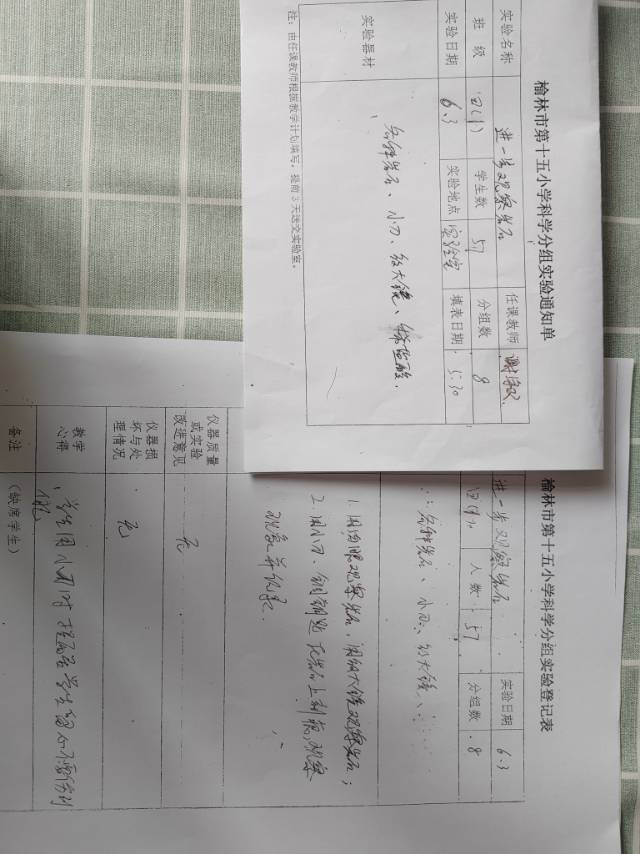 榆林市第十五小学科学分组实验通知单
实验名称 进一步观察岩石 任课教师
班级 四(1) 学生数 57 分组数 8
实验日期 6.3 实验地点 实验室 填表日期 5.30
实验器材 各种岩石、小刀、放大镜、稀盐酸.
注：由任课教师根据教学计划填写，提前3天送交实验室。
榆林市第十五小学科学分组实验登记表
进一步观察岩石 实验日期 6.3
四(1) 人数 57 分组数 8
各种岩石、小刀、放大镜、
1.用肉眼观察岩石，用放大镜观察岩石；
2.用小刀、铜钥匙在岩石上刻痕,观察
观象并记录.
仪器质量或实验改进意见 无
仪器损坏与处理情况 无
教学心得 学生用小刀时 提醒学生
备注 （缺席学生）